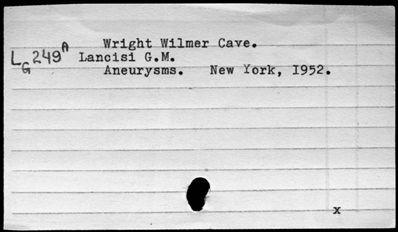 Wright Wilmer Cave.
LG 249A Lancisi G.M.
Aneurysms. New York, 1952.
x